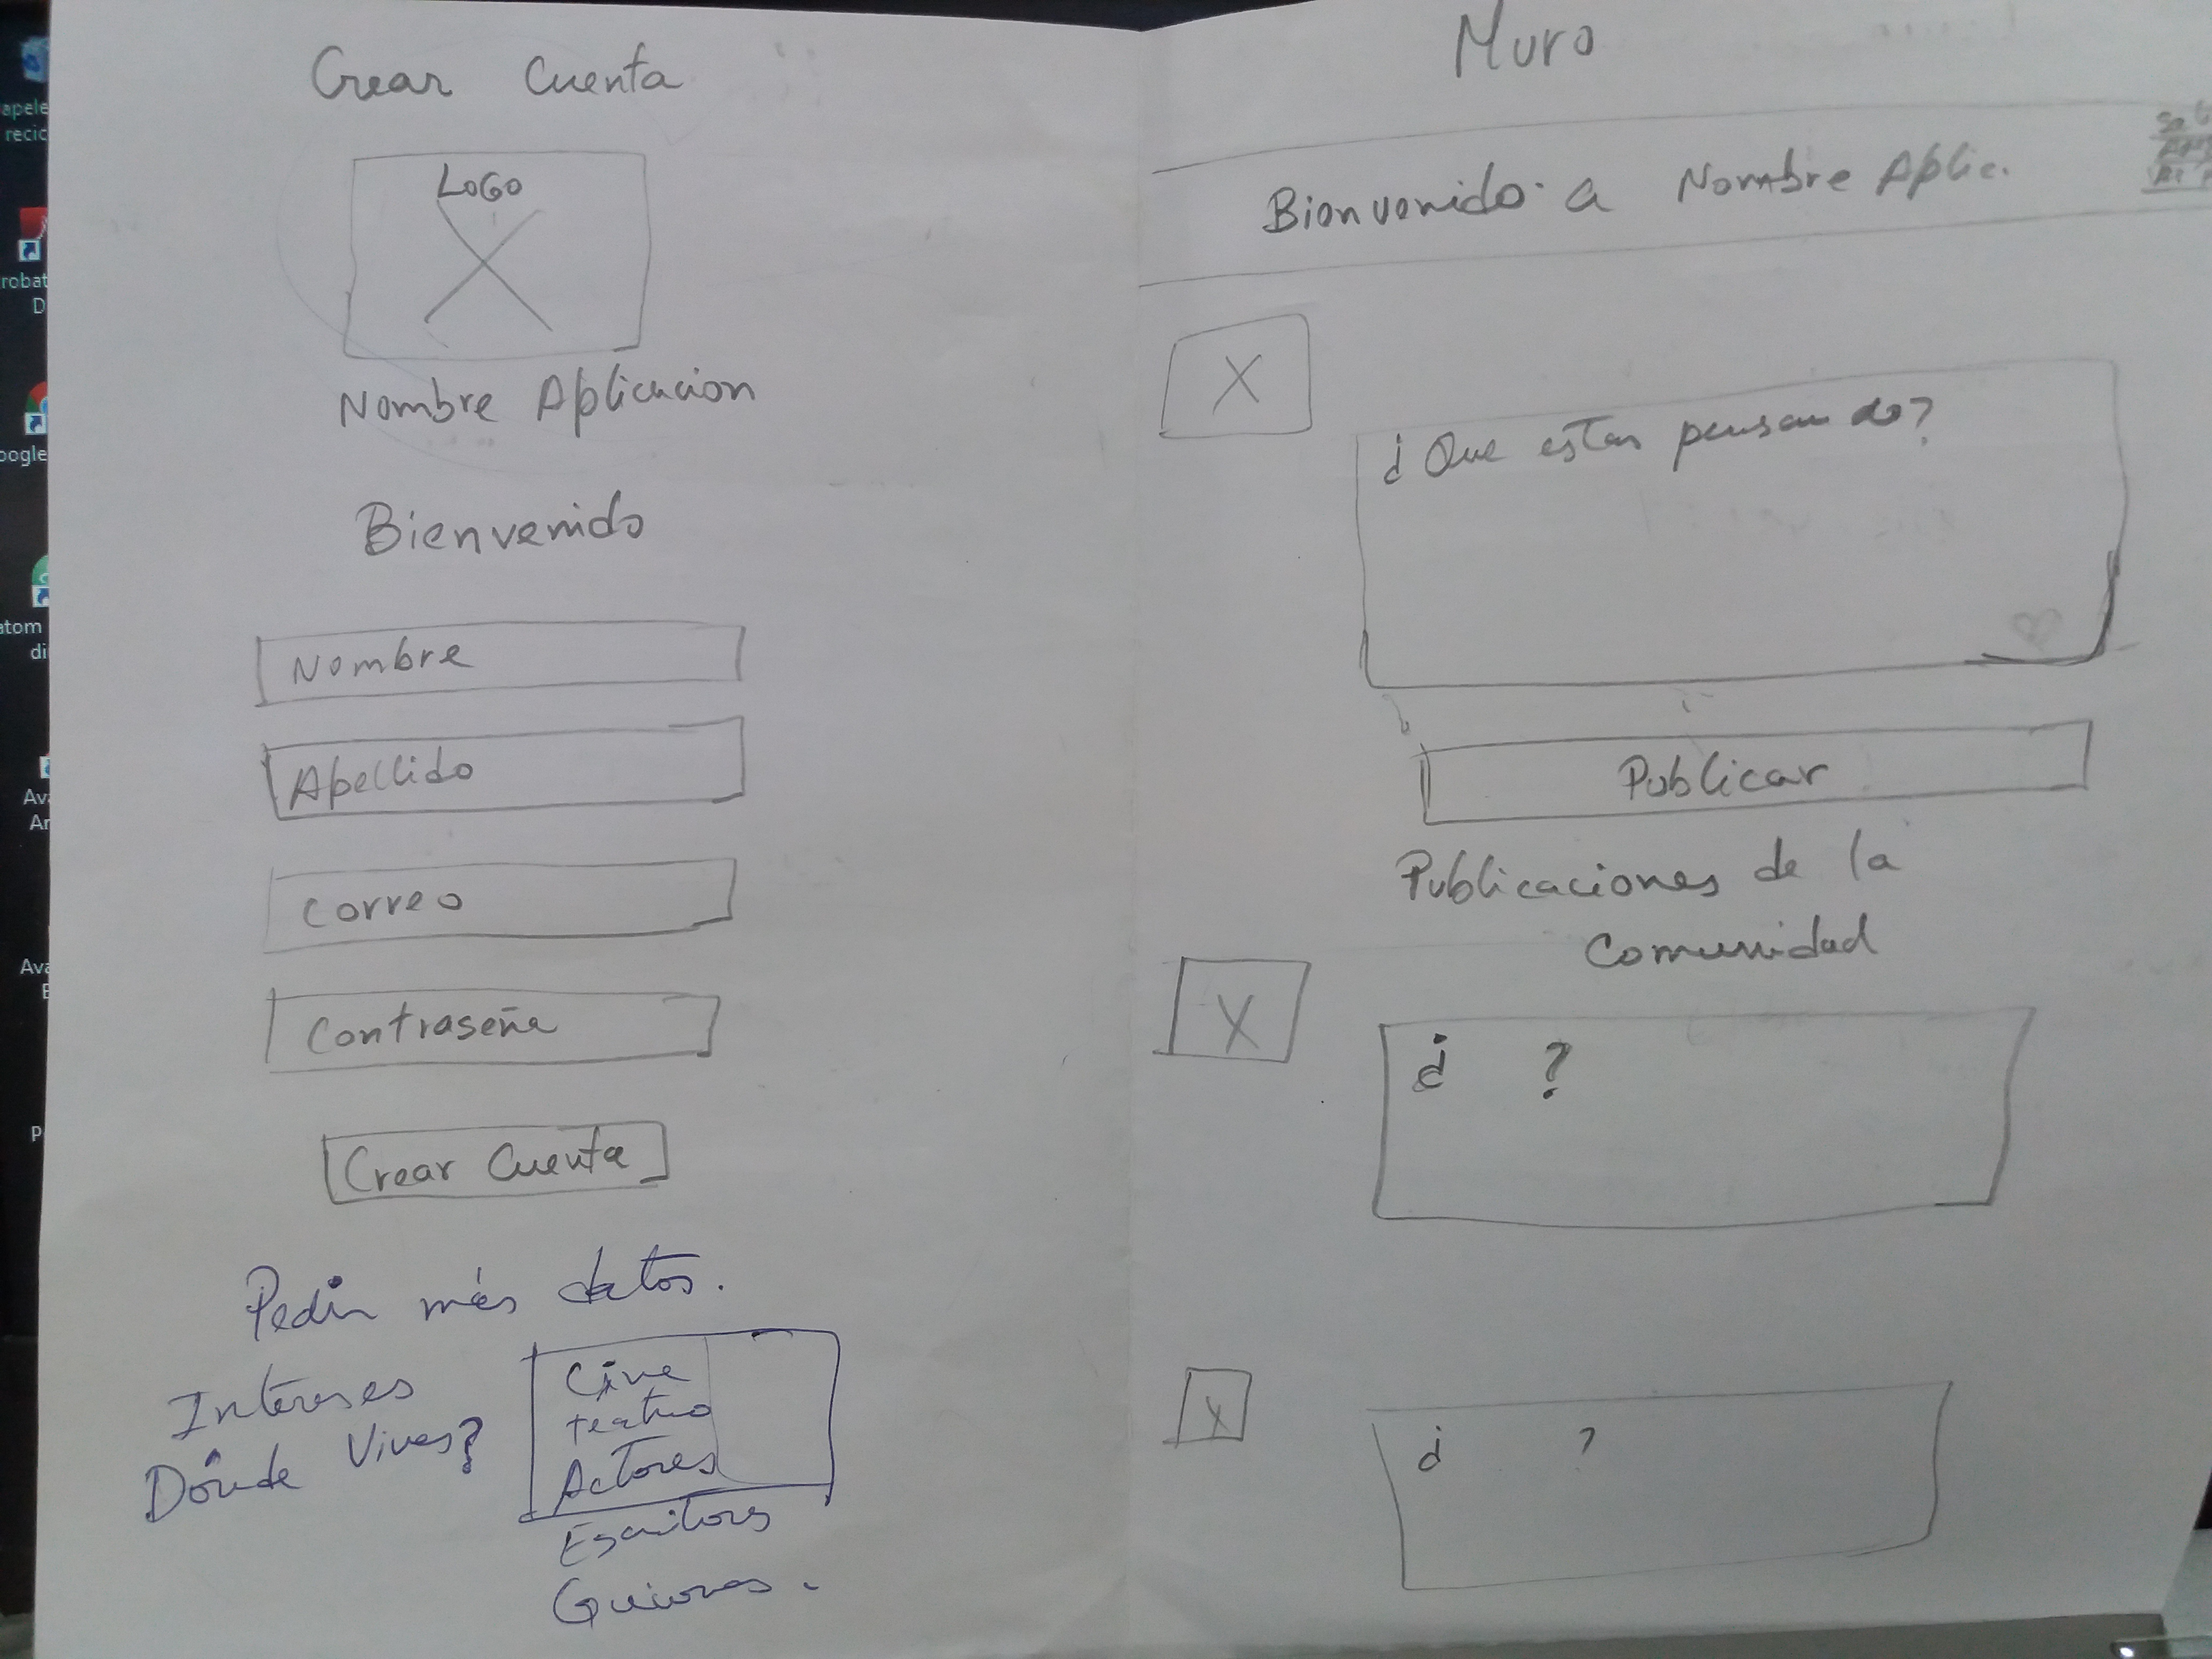 Crear Cuenta
LOGO
Nombre Aplicacion
Bienvenido
Nombre
Apellido
Correo
Contraseña
Crear Cuenta
Pedir más datos.
Intereses
Dónde Vives?
Cine
teatro
Actores
Escritors
Guiones.
Muro
Bienvenido a Nombre Aplic.
X
¿Que estas pensando?
Publicar
Publicaciones de la
Comunidad
X
¿ ?
X
¿ ?
apele
recic
robat
D
oogle
atom
di
Ava
Ar
Ava
E
P